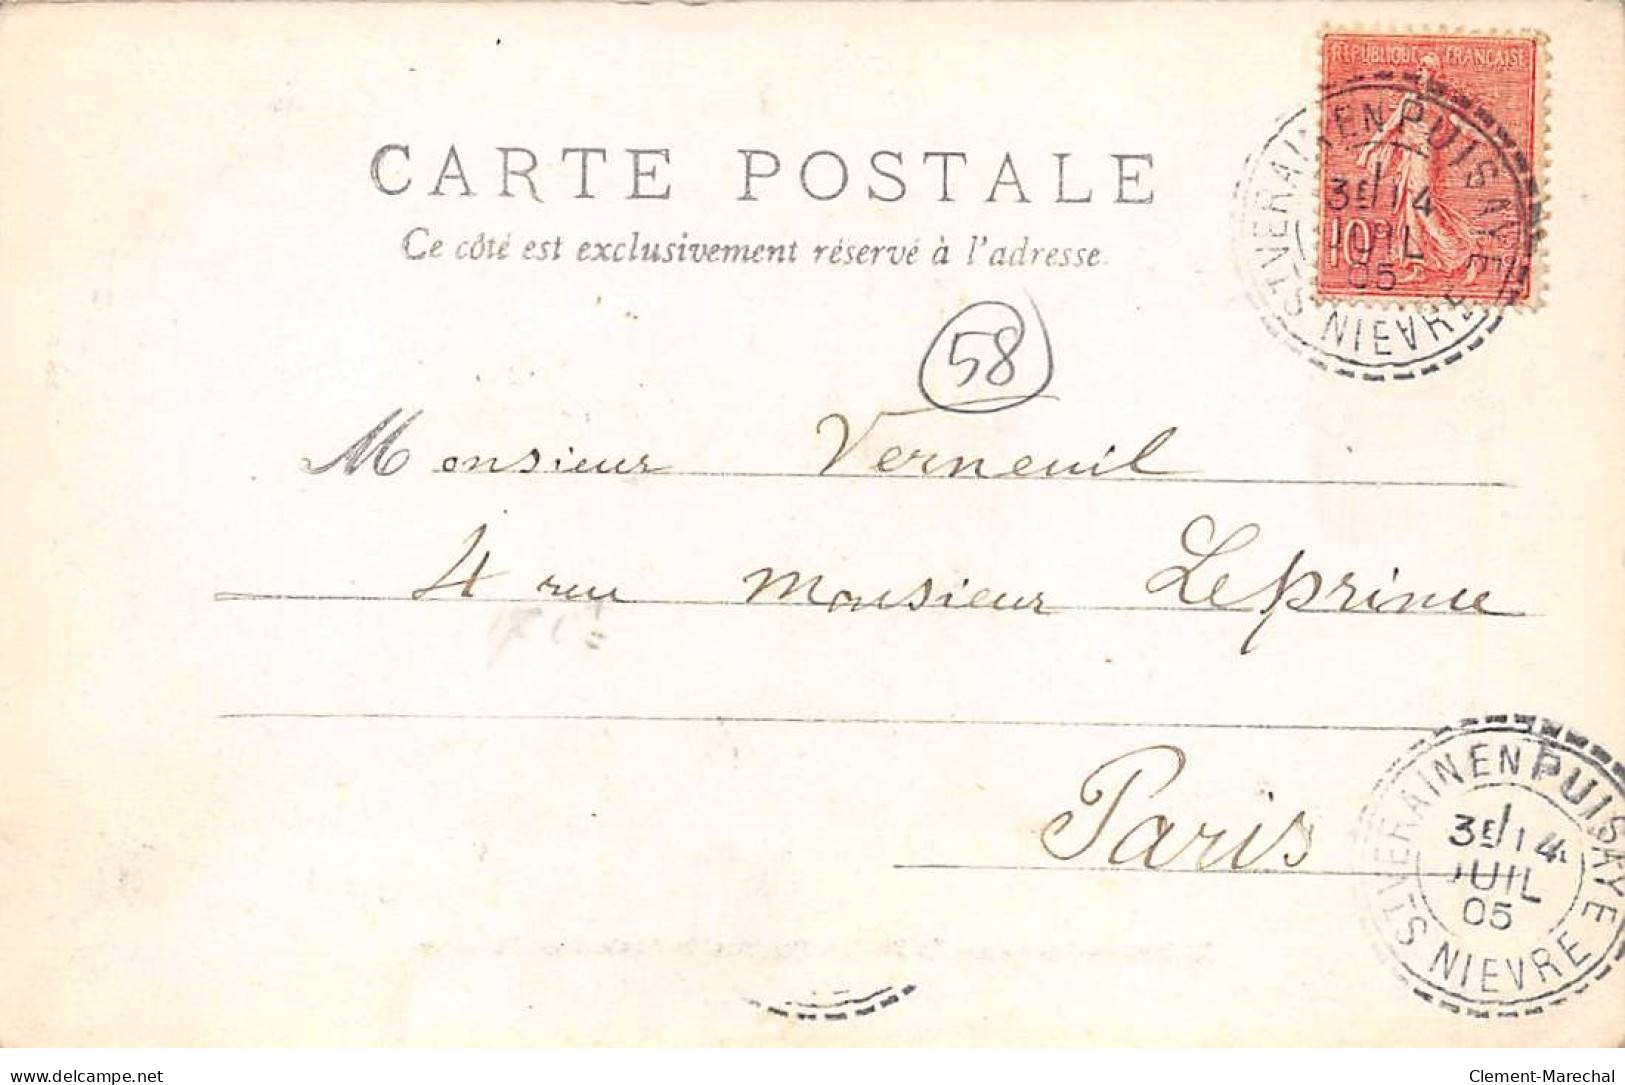 RÉPUBLIQUE FRANÇAISE
10c
ST-VERAIN EN PUISAYE
3E/14
JUIL
05
NIEVRE
CARTE POSTALE
Ce côté est exclusivement réservé à l'adresse.
58
Monsieur Verneuil
4 rue Monsieur Le prince
Paris
ST-VERAIN EN PUISAYE
3E/14
JUIL
05
NIEVRE
www.delcampe.net
Clement-Marechal